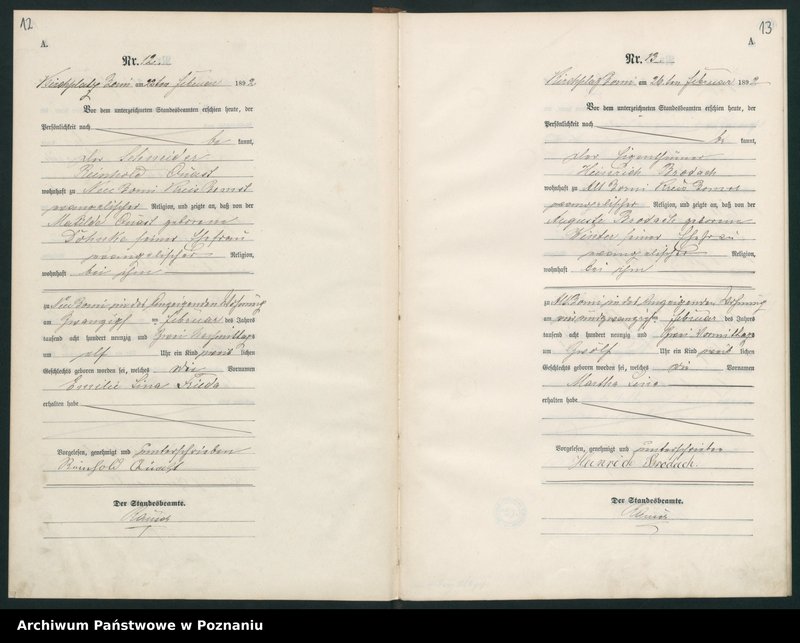 12
A.
Nr. 12.
Kirchplatz Borui am 22ten Februar 1892
Vor dem unterzeichneten Standesbeamten erschien heute, der
Persönlichkeit nach
be kannt,
der Schneider
Reinhold Quast
wohnhaft zu Neu Borui Kreis Bomst
evangelischer Religion, und zeigte an, daß von der
Mathilde Quast geborene
seiner Ehefrau
evangelischer Religion,
wohnhaft bei ihm
zu Neu Borui in des Anzeigenden Wohnung
am zwanzigsten Februar des Jahres
tausend acht hundert neunzig und zwei Nachmittags
um elf Uhr ein Kind weib lichen
Geschlechts geboren worden sei, welches die Vornamen
Emilie Lina Frieda
erhalten habe
Vorgelesen, genehmigt und unterschrieben
Reinhold Quast
Der Standesbeamte.
13
A
Nr. 13.
Kirchplatz Borui am 26ten Februar 1892
Vor dem unterzeichneten Standesbeamten erschien heute, der
Persönlichkeit nach
be kannt,
der Eigenthümer
Heinrich Brodach
wohnhaft zu Alt Borui Kreis Bomst
evangelischer Religion, und zeigte an, daß von der
Auguste Brodach geborene
Winter seiner Ehefrau
evangelischer Religion,
wohnhaft bei ihm
zu Alt Borui in des Anzeigenden Wohnung
am Februar des Jahres
tausend acht hundert neunzig und zwei Vormittags
um zwölf Uhr ein Kind weib lichen
Geschlechts geboren worden sei, welches die Vornamen
Martha Lina
erhalten habe
Vorgelesen, genehmigt und unterschrieben
Heinrich Brodach
Der Standesbeamte.
Archiwum Państwowe w Poznaniu